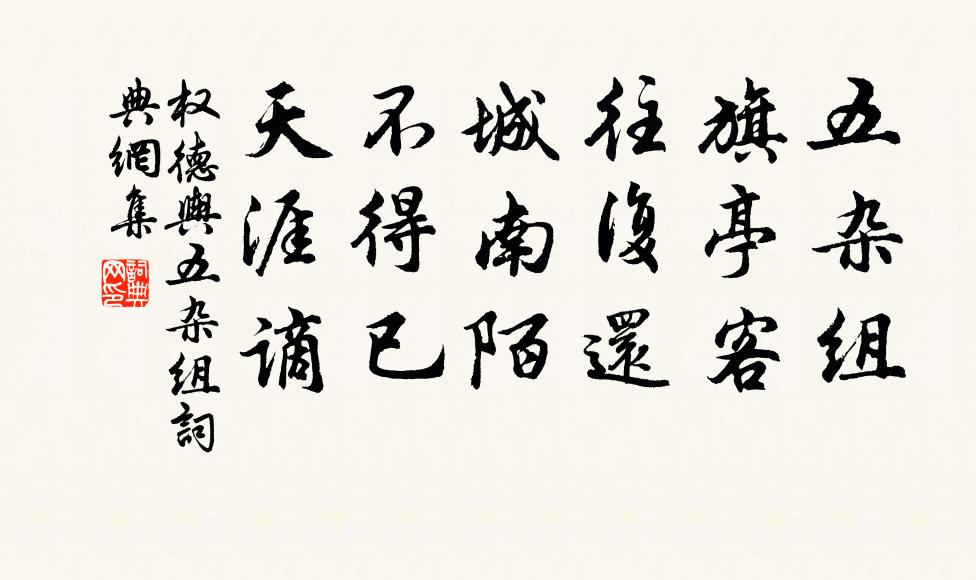 五杂组
旗亭客
往復還
城南陌
不得已
天涯谪
权德舆五杂组詞
典網集
詞典网印